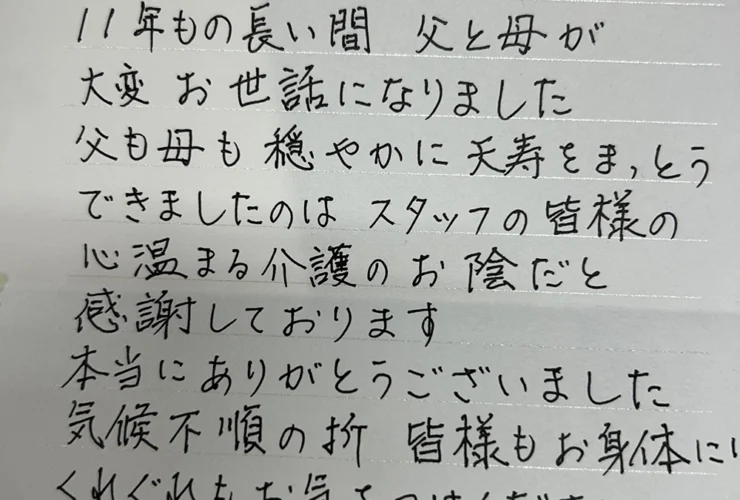 11年もの長い間 父と母が
大変お世話になりました
父も母も穏やかに天寿をまっとう
できましたのは スタッフの皆様の
心温まる介護のお陰だと
感謝しております
本当にありがとうございました
気候不順の折 皆様もお身体に
くれぐれもお気をつけください